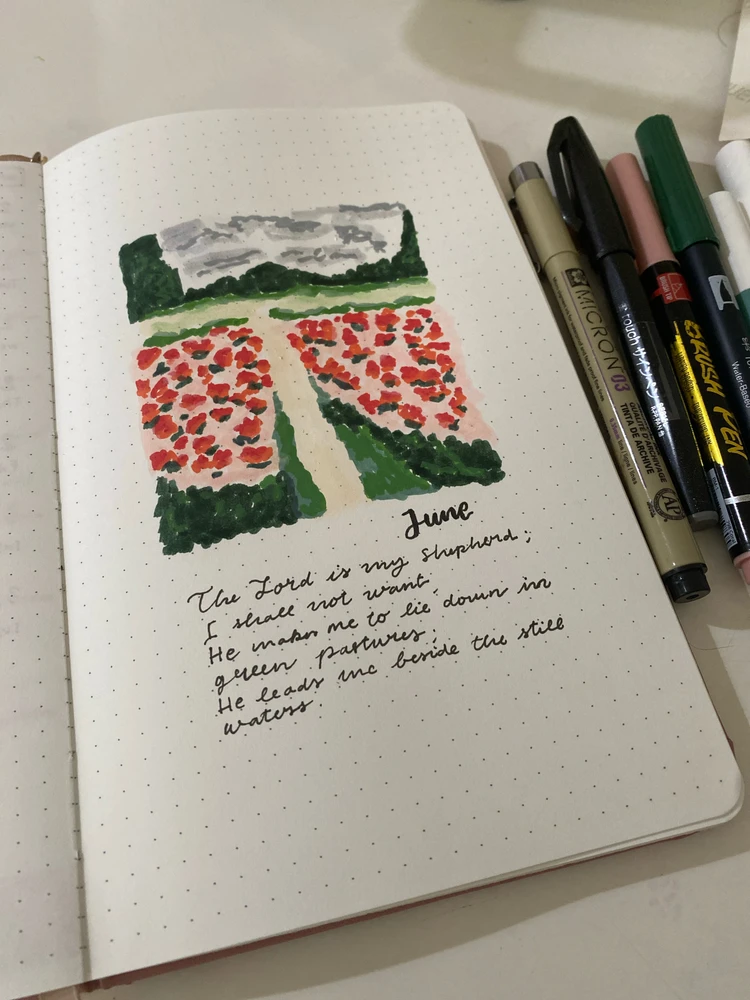 June
The Lord is my shepherd;
I shall not want
He makes me to lie down in
green pastures;
He leads me beside the still
waters
MICRON 03
QUALITÉ D'ARCHIVAGE
TINTA DE ARCHIVE
AP
Touch サインペン
BRUSH PEN
Water-Based